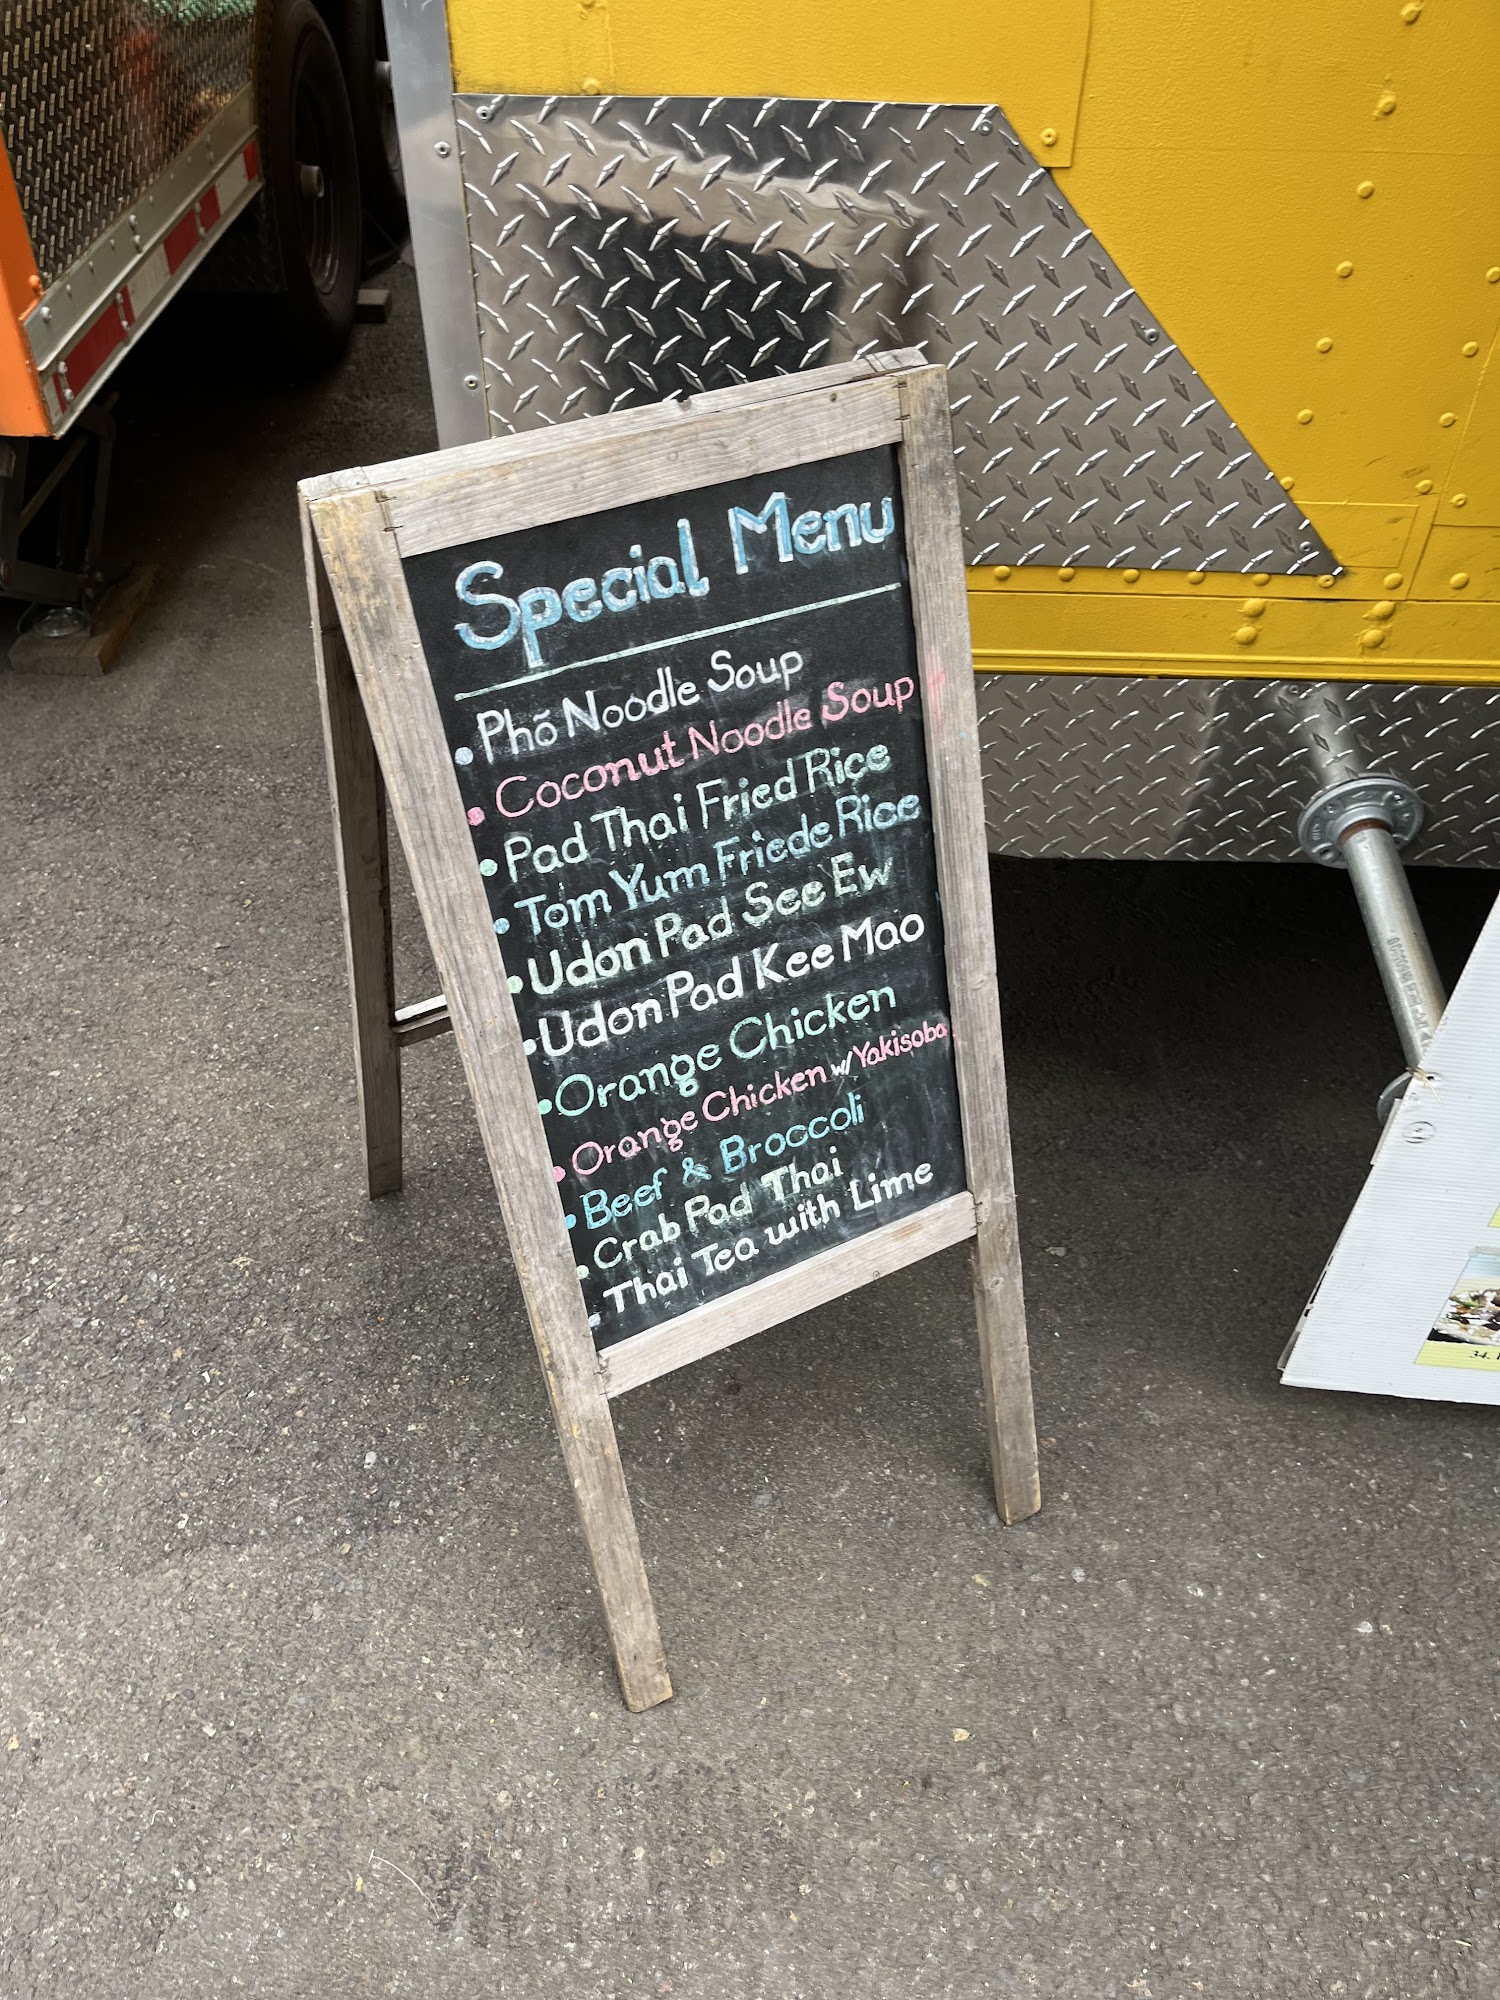 Special Menu
• Phõ Noodle Soup
• Coconut Noodle Soup
• Pad Thai Fried Rice
• Tom Yum Friede Rice
• Udon Pad See Ew
• Udon Pad Kee Mao
• Orange Chicken
• Orange Chicken w/ Yakisoba
• Beef & Broccoli
• Crab Pad Thai
• Thai Tea with Lime
34.